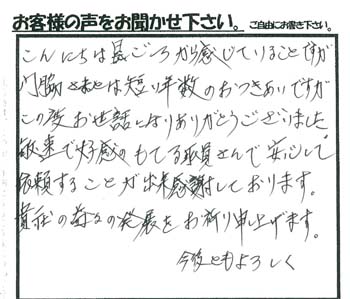 お客様の声をお聞かせ下さい。ご自由にお書き下さい。
こんにちは 日ごろから感じていることですが
門脇さまとは短い年数のおつきあいですが
この度お世話になりありがとうございました
敏速で好感のもてる社員さんで安心して
依頼することが出来感謝しております。
貴社の益々の発展をお祈り申上げます。
今後ともよろしく